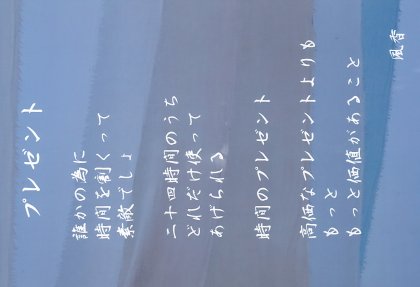 プレゼント
誰かの為に
時間を割くって
素敵でしょ
二十四時間のうち
どれだけ使って
あげられる
時間のプレゼント
高価なプレゼントよりも
もっと
もっと価値があること
風香